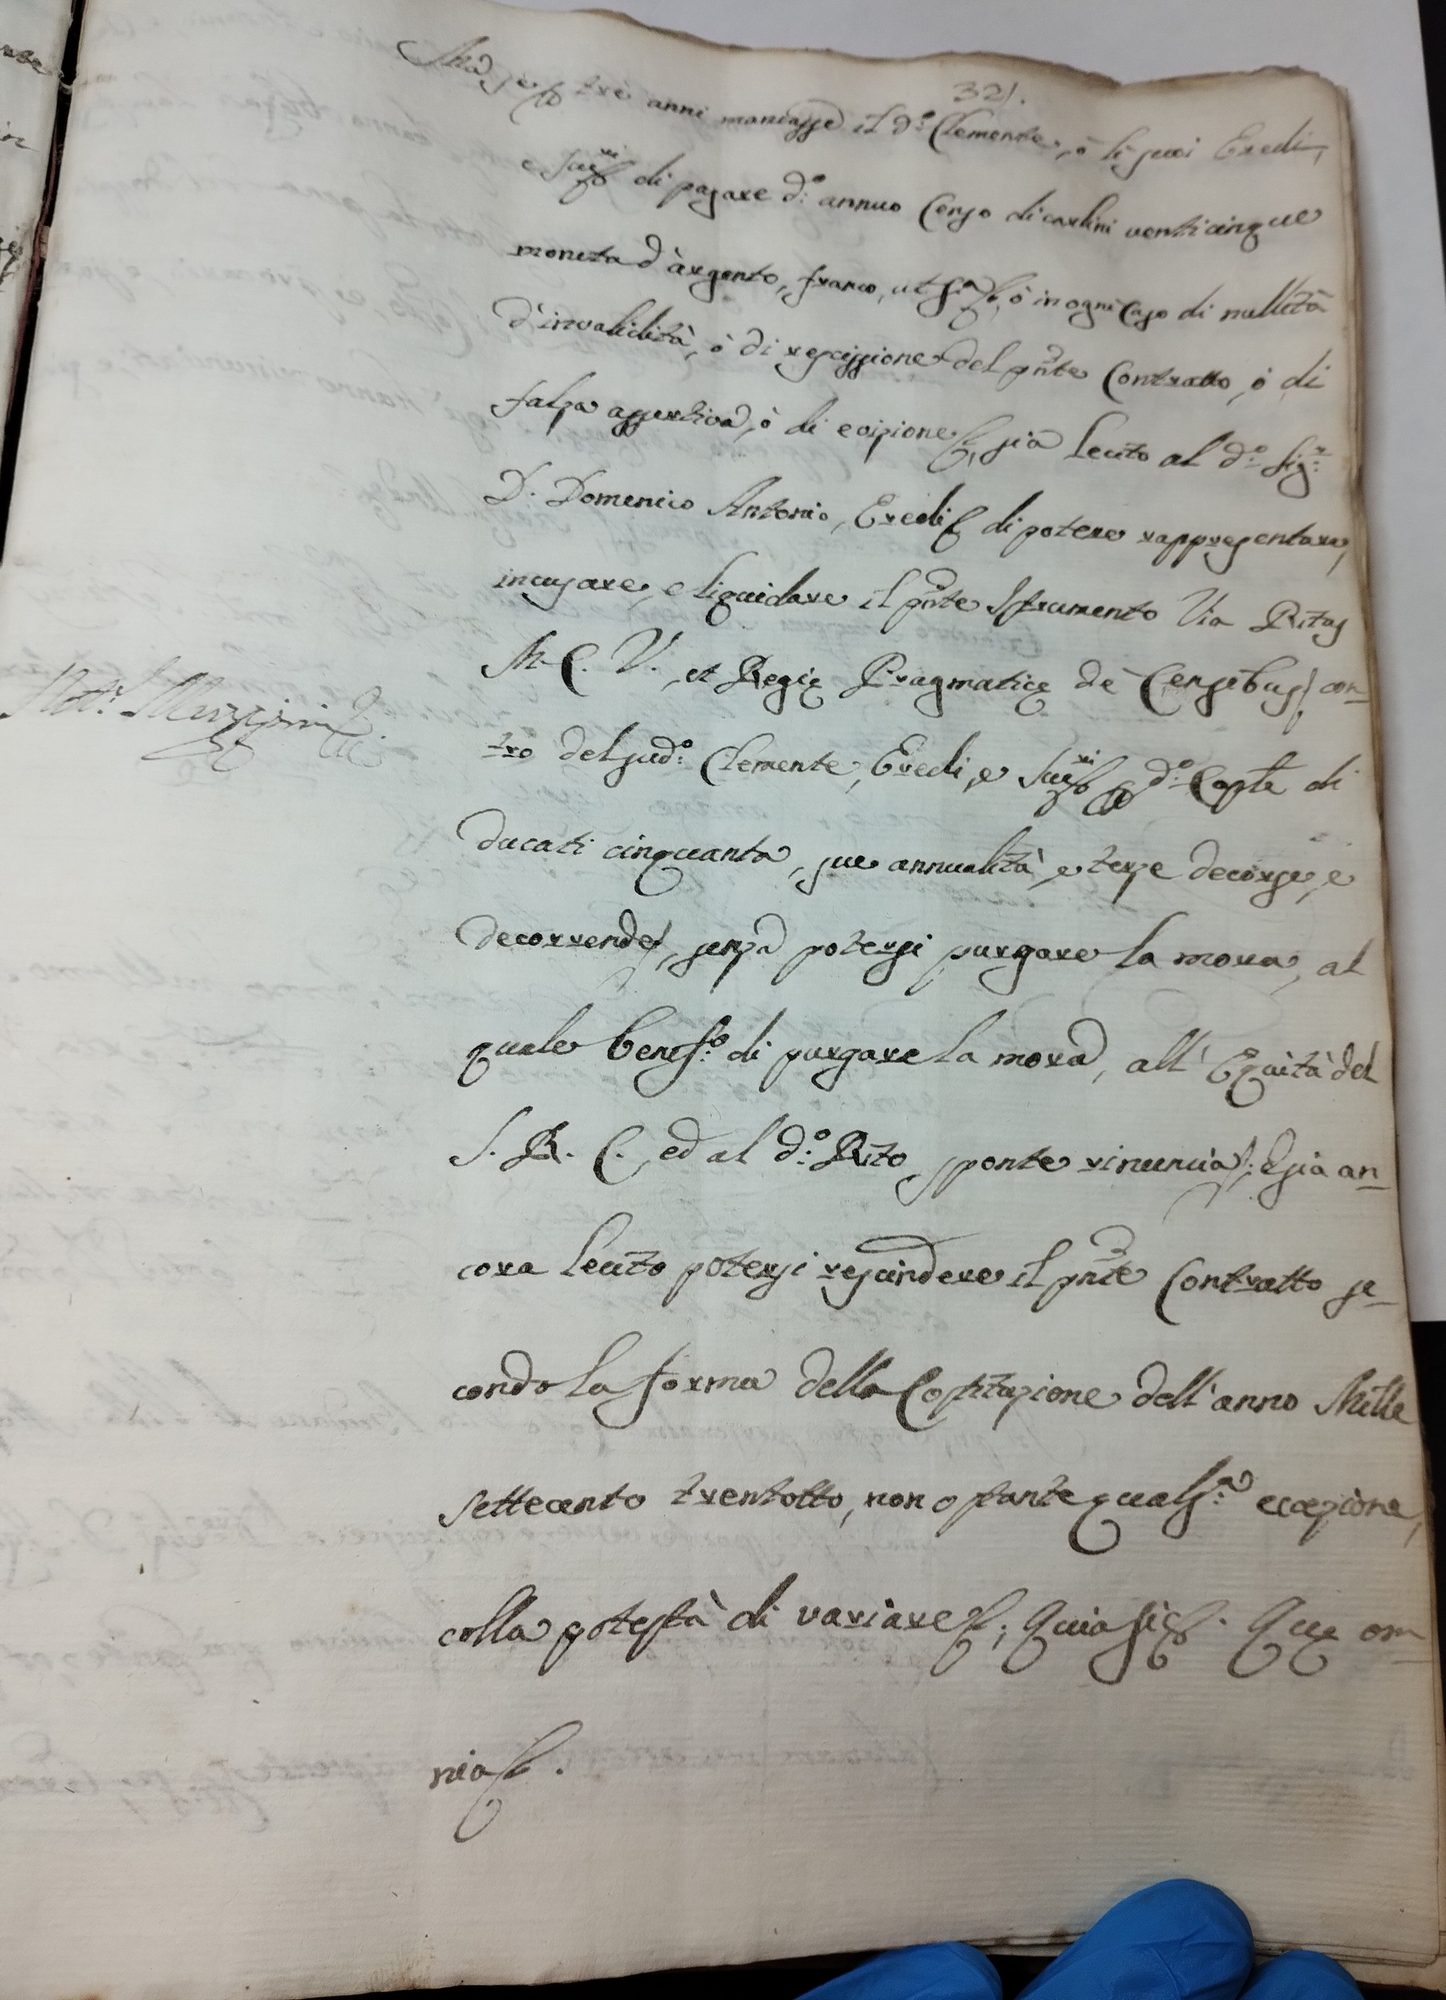 321.
Mà se per tre anni mancasse il d.º Clemente, ò li suoi Eredi,
e Succ.ri di pagare d.º annuo Censo di carlini venticinque
moneta d'argento, franco, ut s.ª, ò in ogni Caso di nullità
d'invalidità, ò di rescissione del pñte Contratto, ò di
falsa assertiva, ò di evizione, sia lecito al d.º Sig.r
D. Domenico Antonio, Eredi di potere rappresentare,
incusare, e liquidare il pñte Istrumento Via Ritus
M. C. V., et Regię Pragmaticę de Censibus, con-
tro del sud.º Clemente, Eredi, e Succ.ri per d.º Caple di
ducati cinquanta, sue annualità, e terze decorse, e
decorrende, senza potersi purgare la mora, al
quale benef.º di purgare la mora, all' Equità del
S. R. C., ed al d.º Rito sponte rinuncia; E sia an-
cora lecito potersi rescindere il pñte Contratto se-
condo la forma della Costitazione dell'anno Mille
settecento trentotto, non ostante quals.ª eccezione,
colla potestà di variare; Quia sic. Quę om-
nia.
Not.r